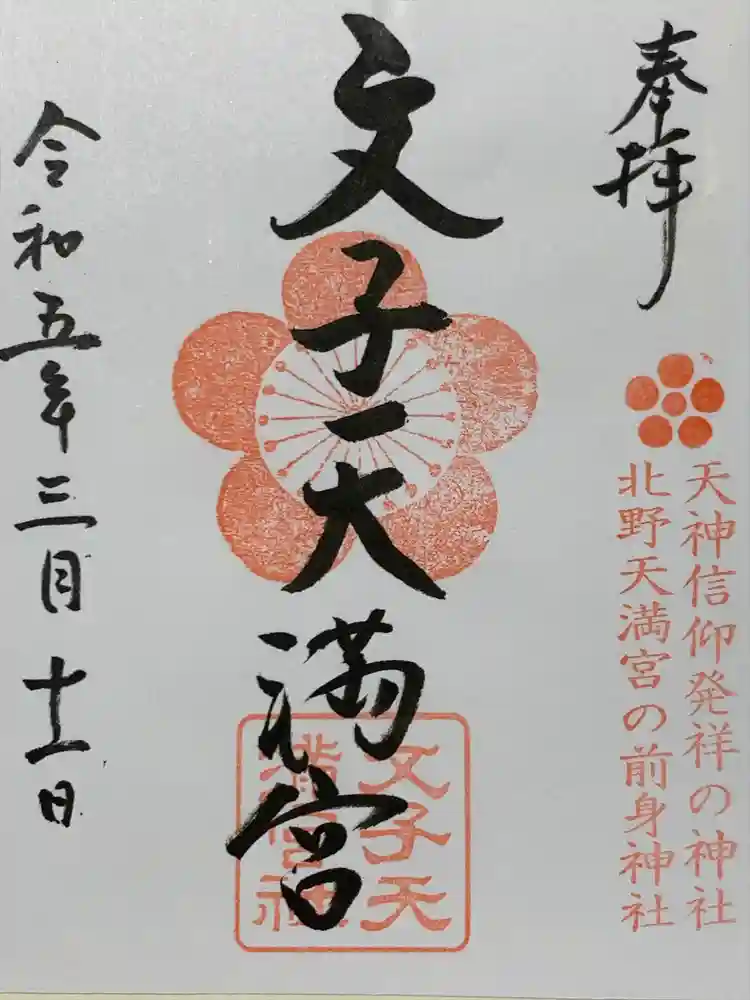 奉拝
天神信仰発祥の神社
北野天満宮の前身神社
文子天満宮
文子天
満宮社
令和五年三月十一日